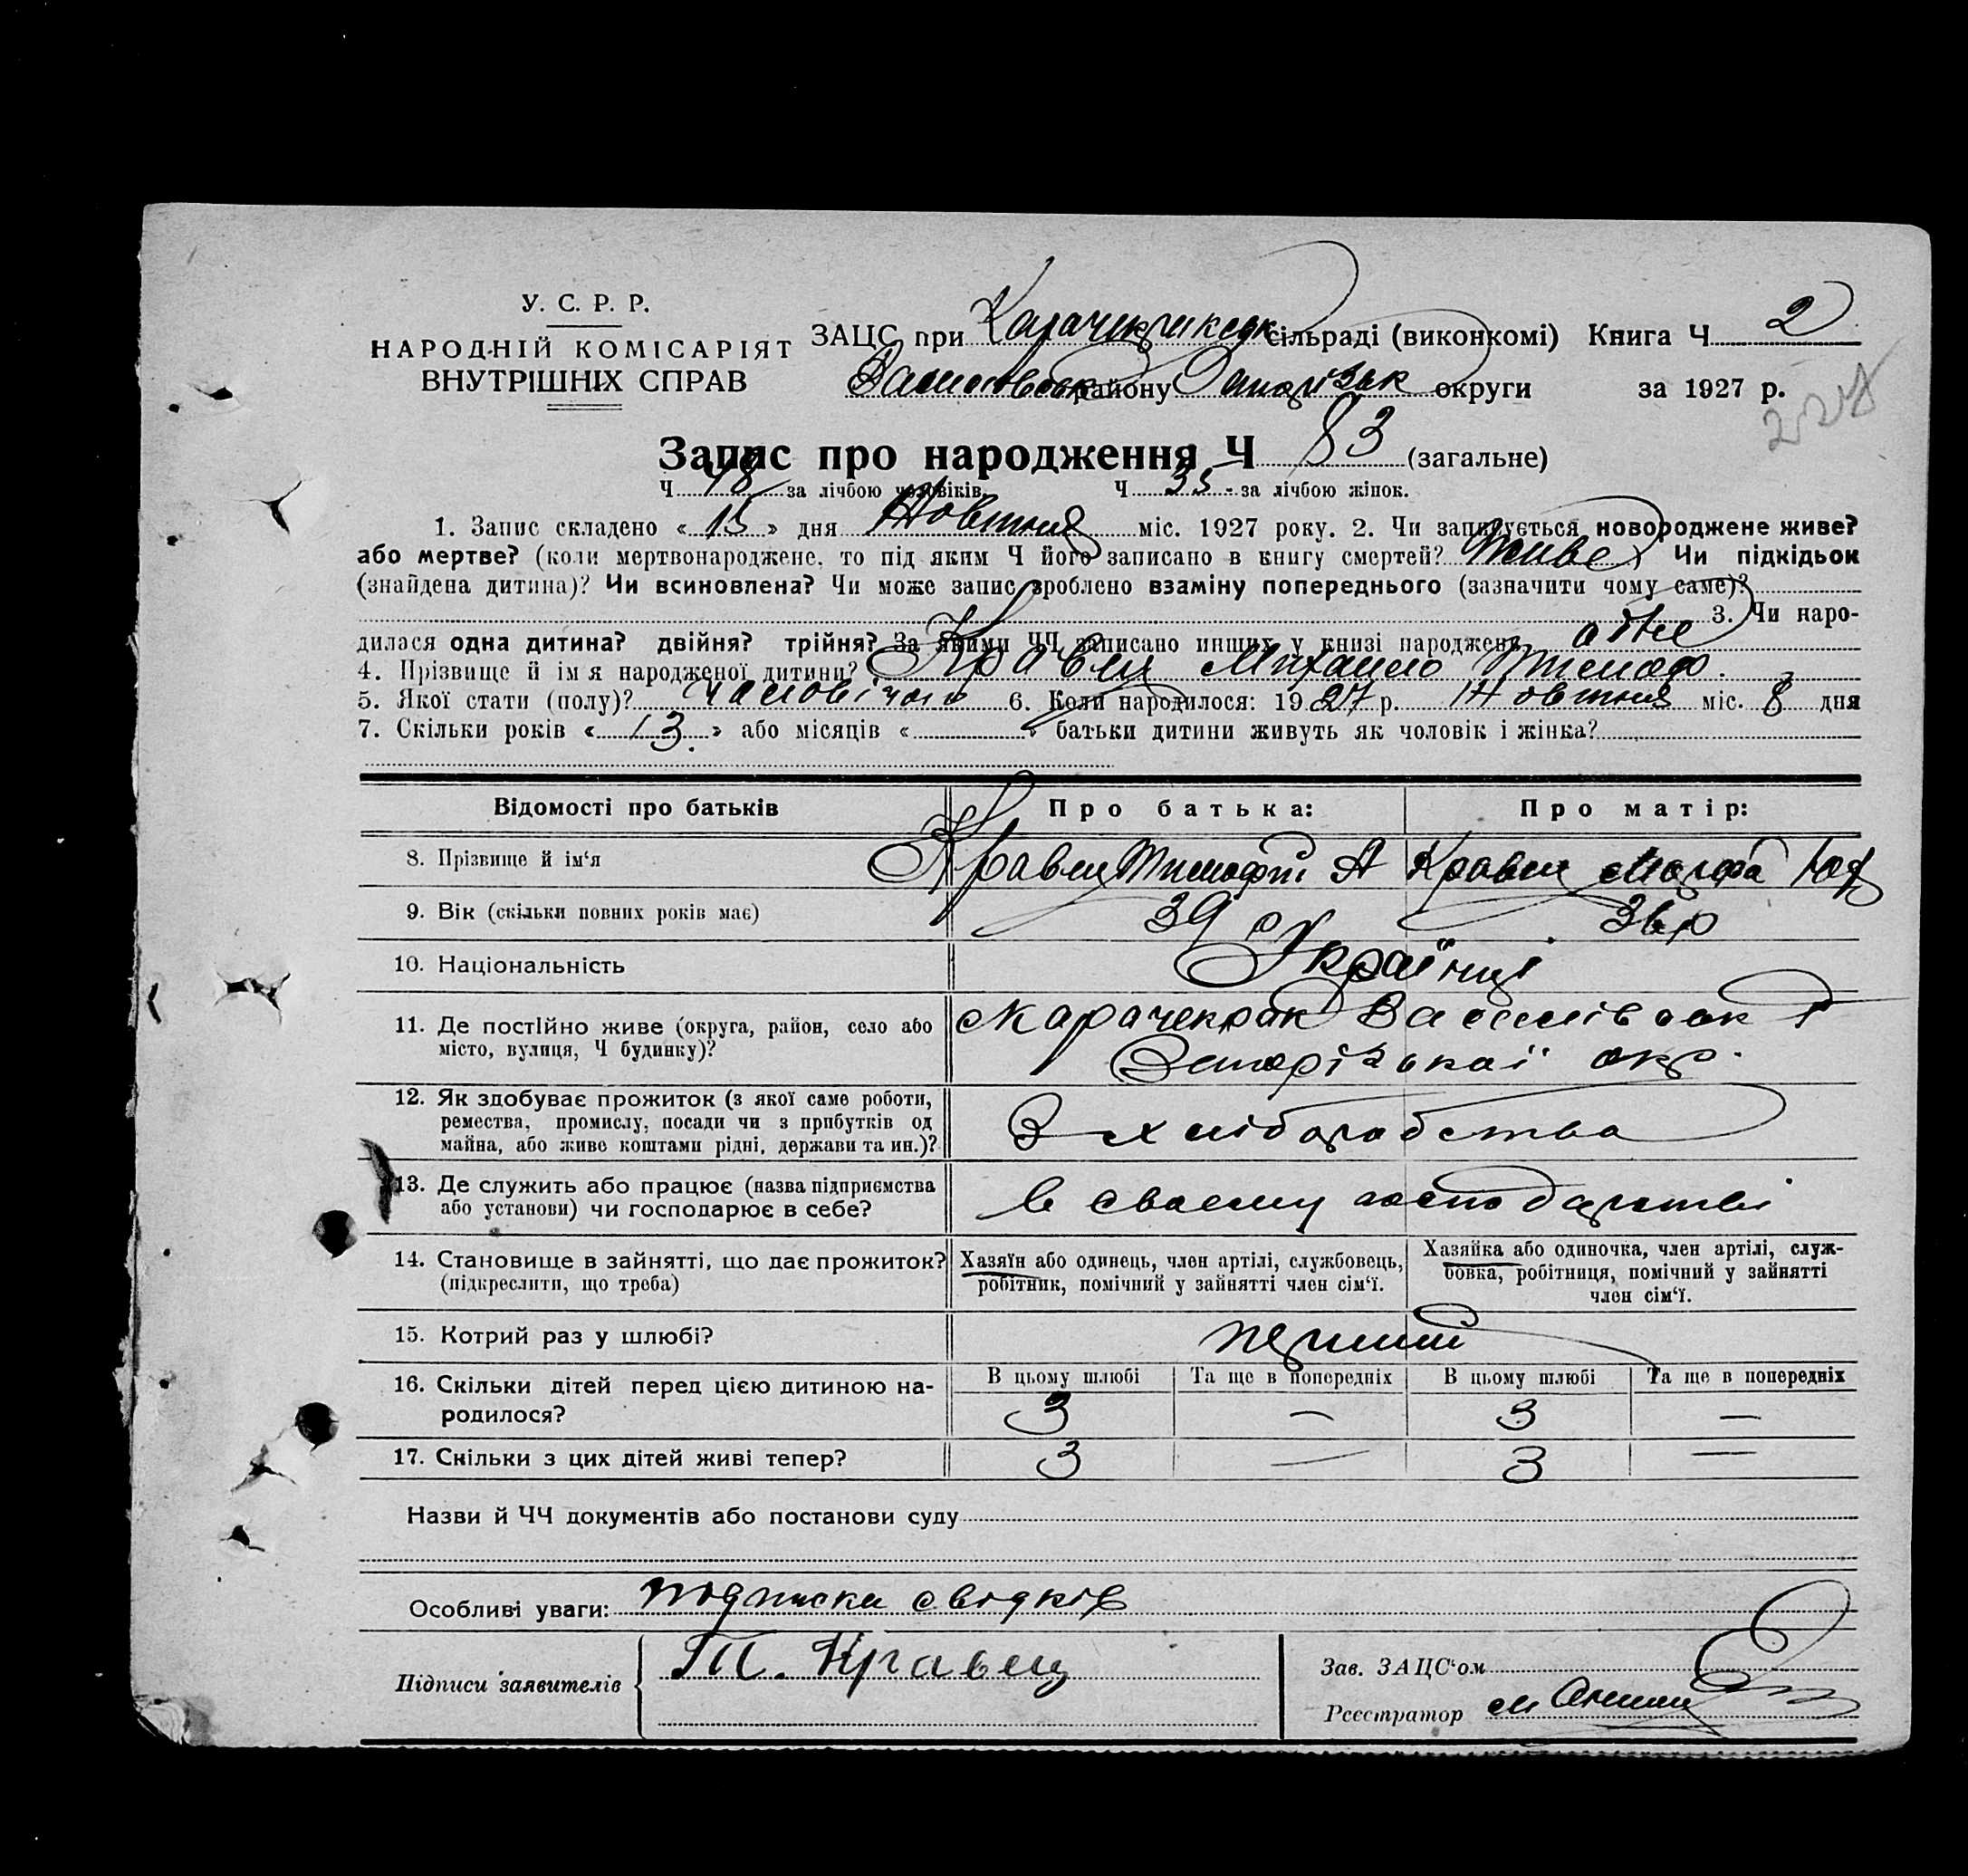 У. С. Р. Р.
НАРОДНІЙ КОМІСАРІЯТ
ВНУТРІШНІХ СПРАВ
ЗАЦС при сільраді (виконкомі) Книга Ч 2
району Запорізьк округи за 1927 р.
228
Запис про народження Ч 83 (загальне)
Ч 48 за лічбою чоловіків. Ч 35 за лічбою жінок.
1. Запис складено « 15 » дня Жовтня міс. 1927 року. 2. Чи записується новороджене живе?
або мертве? (коли мертвонароджене, то під яким Ч його записано в книгу смертей? Живе) Чи підкідьок
(знайдена дитина)? Чи всиновлена? Чи може запис зроблено взаміну попереднього (зазначити чому саме)?
3. Чи наро-
дилася одна дитина? двійня? трійня? За якими ЧЧ записано инших у книзі народжень одне
4. Прізвище й ім'я народженої дитини? Кравец Михаило Тимоф.
5. Якої стати (полу)? чаловічого 6. Коли народилося: 1927 р. Жовтня міс. 8 дня
7. Скільки років « 13 » або місяців « » батьки дитини живуть як чоловік і жінка?
Відомості про батьків Про батька: Про матір:
8. Прізвище й ім'я Кравец Тимофій А Кравец Марфа
9. Вік (скільки повних років має) 39 р 36 р
10. Національність Українці
11. Де постійно живе (округа, район, село або Карачекрак Василівськ р
місто, вулиця, Ч будинку)? Запорізькаї окр.
12. Як здобуває прожиток (з якої саме роботи,
ремества, промислу, посади чи з прибутків од З хліборобства
майна, або живе коштами рідні, держави та ин.)?
13. Де служить або працює (назва підприємства
або установи) чи господарює в себе? В своему господарстві
14. Становище в зайнятті, що дає прожиток? Хазяїн або одинець, член артілі, службовець, Хазяйка або одиночка, член артілі, служ-
(підкреслити, що треба) робітник, помічний у зайнятті член сім'ї. бовка, робітниця, помічний у зайнятті
член сім'ї.
15. Котрий раз у шлюбі? перший
16. Скільки дітей перед цією дитиною на- В цьому шлюбі Та ще в попередніх В цьому шлюбі Та ще в попередніх
родилося? 3 — 3 —
17. Скільки з цих дітей живі тепер? 3 — 3 —
Назви й ЧЧ документів або постанови суду
Особливі уваги: подписки свідків
Підписи заявителів Т. Кравец
Зав. ЗАЦС'ом
Реєстратор